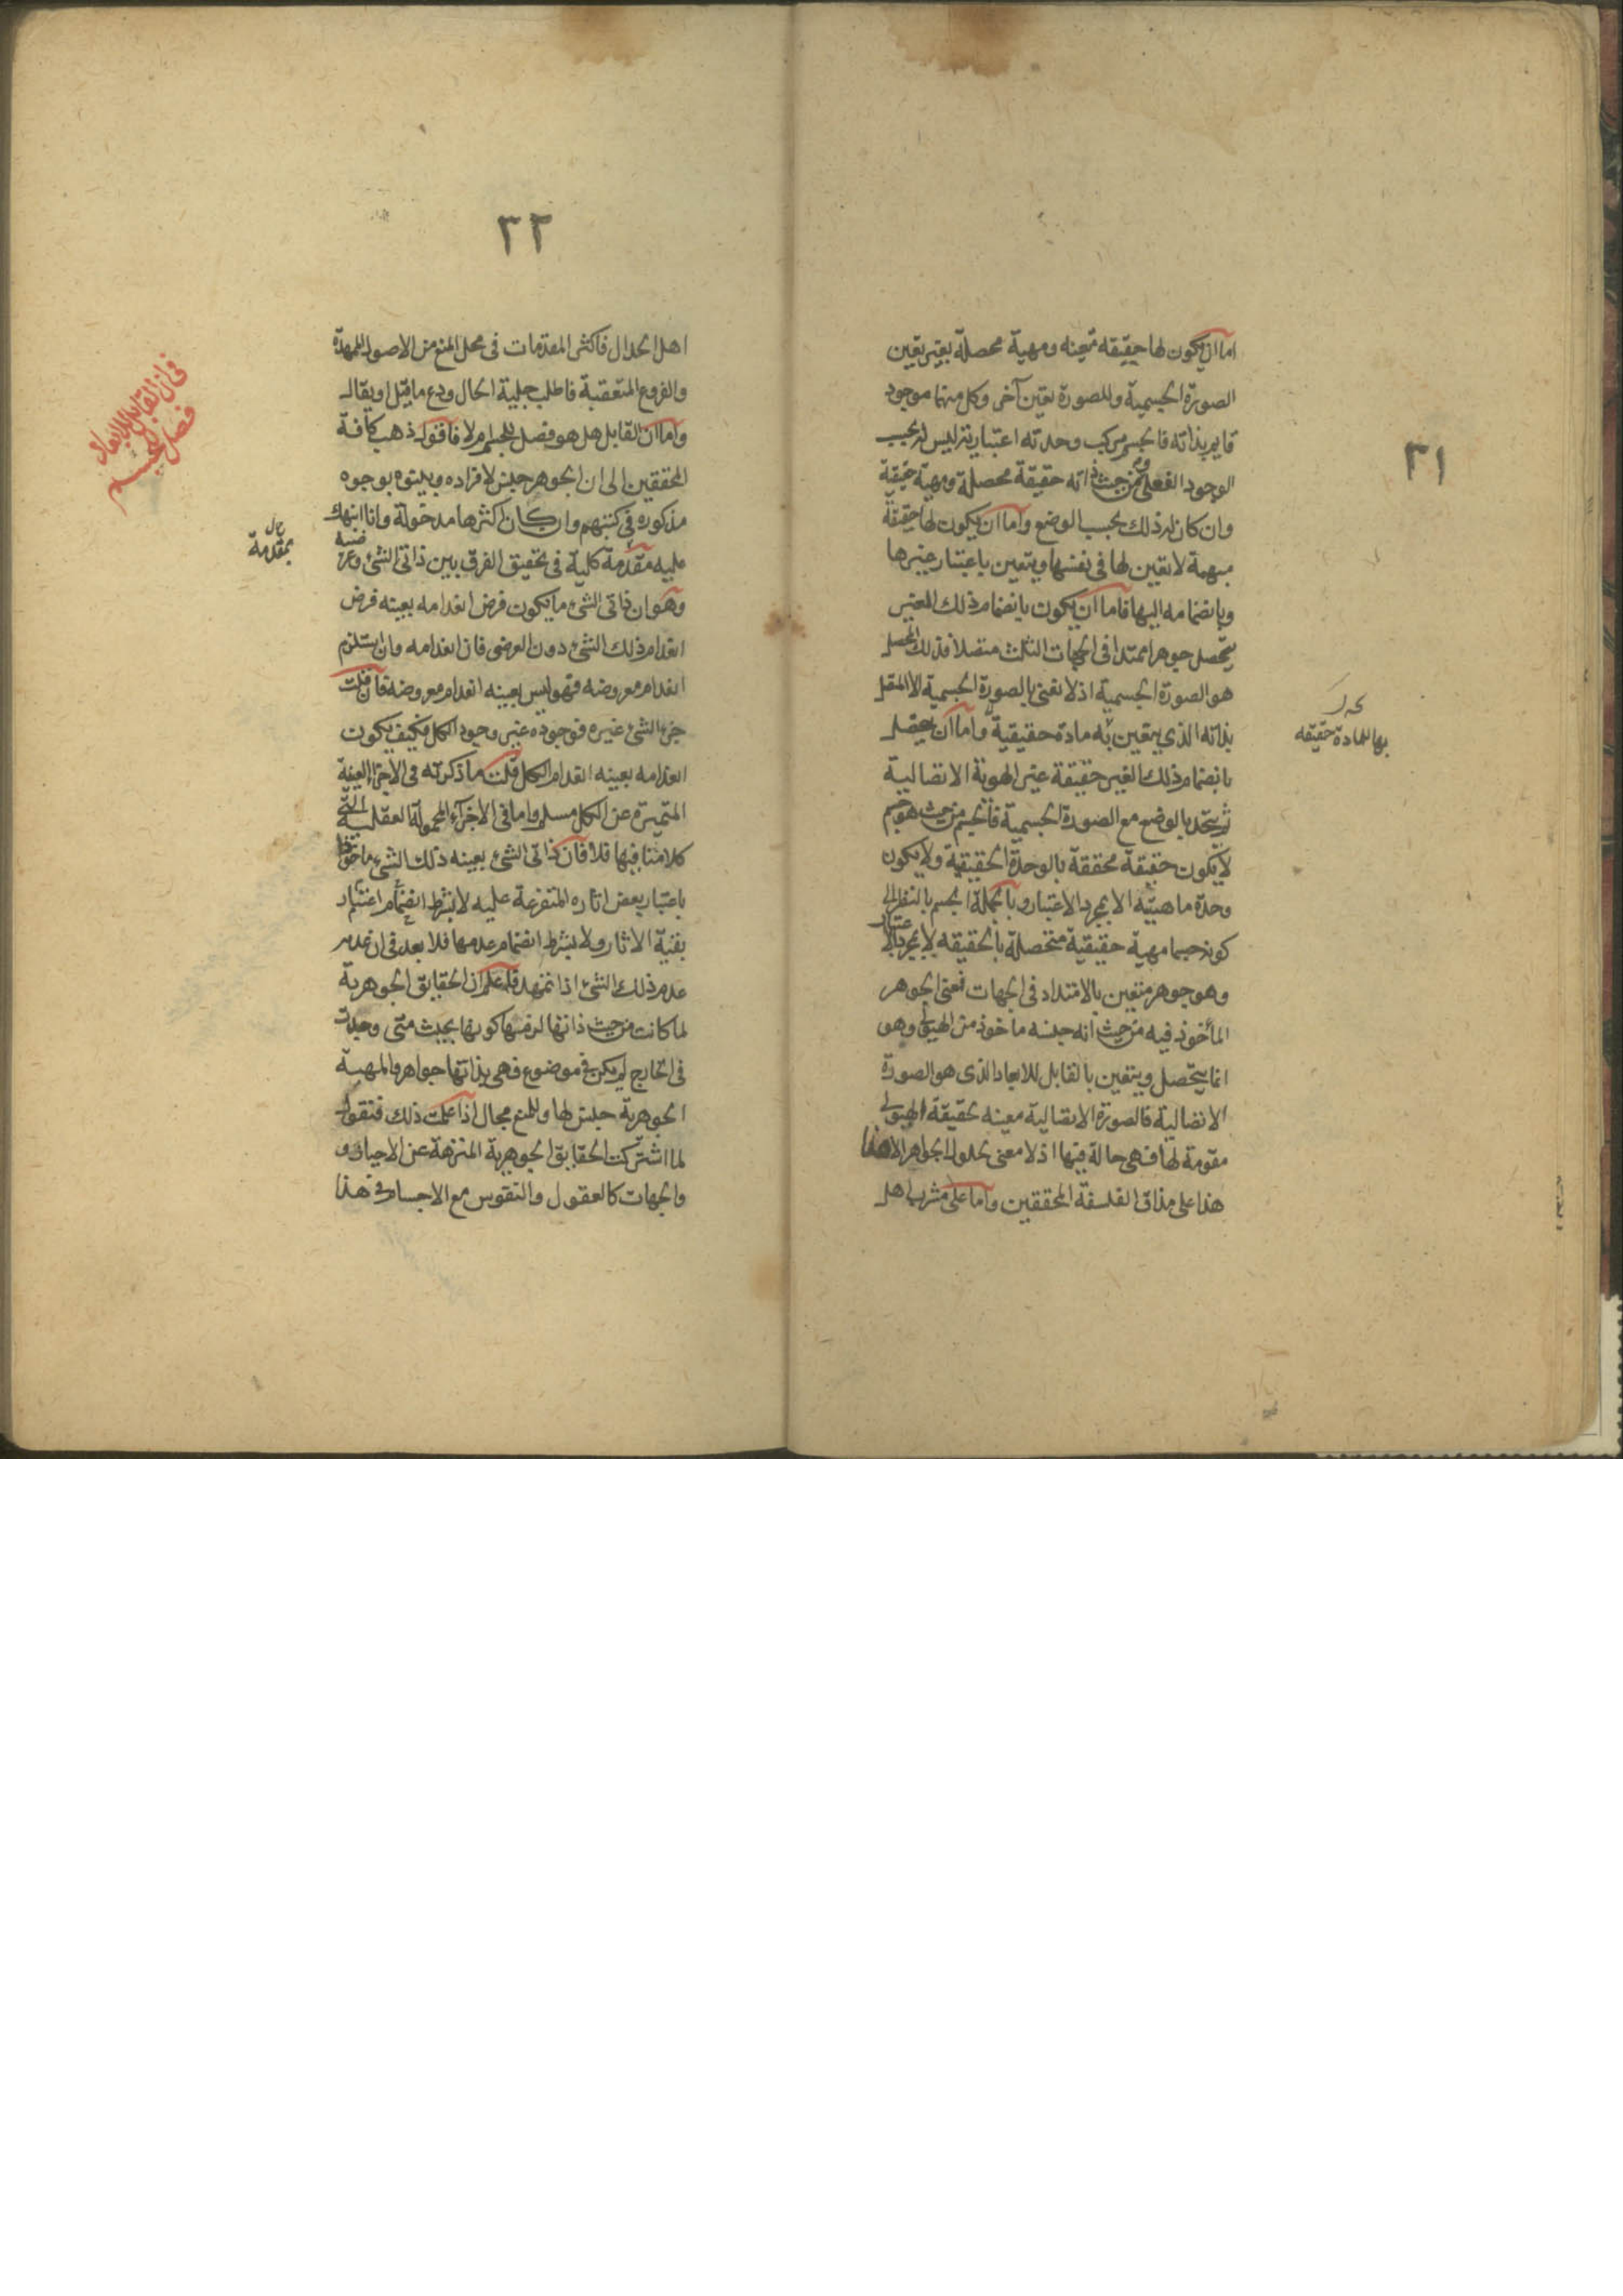 ٣١
اما ان يكون لها حقيقه متعينه ومهية محصلة بغير تعين
الصورة الجسمية وللصورة تعين آخر وكل منهما موجود
قايم بذاته فالجسم مركب وحدته اعتبارية ليس له بحسب
الوجود الفعلى ومن حيث ذاته حقيقة محصلة ومهية حقيقية
وان كان له ذلك بحسب الوضع واما ان يكون لها حقيقة
مبهمة لا تعين لها فى نفسها ويتعين باعتبار غيرها
وبانضمامه اليها فاما ان يكون بانضمام ذلك المعين
يتحصل جوهرا ممتدا فى الجهات الثلث متصلا فذلك المحصل
هو الصورة الجسمية اذ لا نعنى بالصورة الجسمية الا المتصل
بذاته الذى يتعين به مادة حقيقية واما ان يحصل
بها المادة حقيقه
بانضمام ذلك الغير حقيقة غير الهوية الاتصالية
ثم يتحد بالوضع مع الصورة الجسمية فالجسم من حيث هو جسم
لا يكون حقيقة محققة بالوحدة الحقيقية ولا يكون
وحدة ماهيته الا بمجرد الاعتبار وبالجملة الجسم بالنظر الى
كونه جسما مهية حقيقية متحصلة بالحقيقه لا بمجرد الاعتبار
وهو جوهر متعين بالامتداد فى الجهات فمعنى الجوهر
المأخوذ فيه من حيث انه جنسه ماخوذ من الهيولى وهو
انما يتحصل ويتعين بالقابل للابعاد الذى هو الصورة
الاتصالية فالصورة الاتصالية معينه لحقيقة الهيولى
مقومة لها فهى حالة فيها اذ لا معنى لحلول الجواهر الا هذا
هذا على مذاق الفلسفة المحققين واما على مشرب اهل
٣٢
اهل الجدال فاكثر المقدمات فى محل المنع من الاصول الممهدة
والفروع المتعقبة فاطلب جلية الحال ودع ما قيل او يقال
واما ان القابل هل هو فصل للجسم ام لا فاقول ذهب كافة
فى ان القابل للابعاد
فصل الجسم
المحققين الى ان الجوهر جنس لافراده وبينوه بوجوه
مذكوره فى كتبهم وان كان اكثرها مدخولة وانا انبهك
عليه مقدمة كلية فى تحقيق الفرق بين ذاتى الشئ وعرضيه
بمقدمة
وهو ان ذاتى الشئ ما يكون فرض انعدامه بعينه فرض
انعدام ذلك الشئ دون العرضى فان انعدامه وان استلزم
انعدام معروضه فهو ليس بعينه انعدام معروضه فان قلت
جزء الشئ غيره فوجوده غير وجود الكل فكيف يكون
انعدامه بعينه انعدام الكل قلت ما ذكرته فى الاجزاء العينية
المتميزة عن الكل مسلم واما فى الاجزاء المحمولة العقلية التى
كلامنا فيها فلا فان ذاتى الشئ بعينه ذلك الشئ ماخوذا
باعتبار بعض اثاره المتفرعة عليه لا بشرط انضمام اعتبار
بقية الاثار ولا بشرط انضمام عدمها فلا بعد فى ان عدمه
عدم ذلك الشئ اذا تمهد فاعلم ان الحقايق الجوهرية
لما كانت من حيث ذاتها لزمها كونها بحيث متى وجدت
فى الخارج لم يكن فى موضوع فهى بذاتها جواهر والمهية
الجوهرية جنس لها وللمنع مجال اذا علمت ذلك فنقول
لما اشتركت الحقايق الجوهرية المنزهة عن الاحياز و
والجهات كالعقول والنفوس مع الاجساد فى هذا